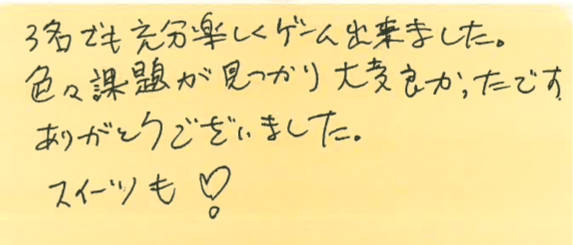 3名でも充分楽しくゲーム出来ました。
色々課題が見つかり大変良かったです
ありがとうございました。
スイーツも♡!